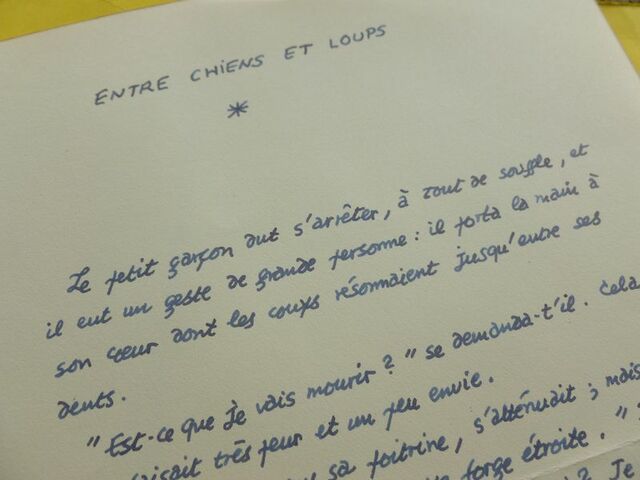 ENTRE CHIENS ET LOUPS
*
Le petit garçon dut s'arrêter, à bout de souffle, et
il eut un geste de grande personne : il porta la main à
son cœur dont les coups résonnaient jusqu'entre ses
dents.
"Est-ce que je vais mourir ? " se demanda-t'il. Cela
faisait très peur et un peu envie.
sa poitrine, s'atténuait ; mais
forge étroite. "
? Je